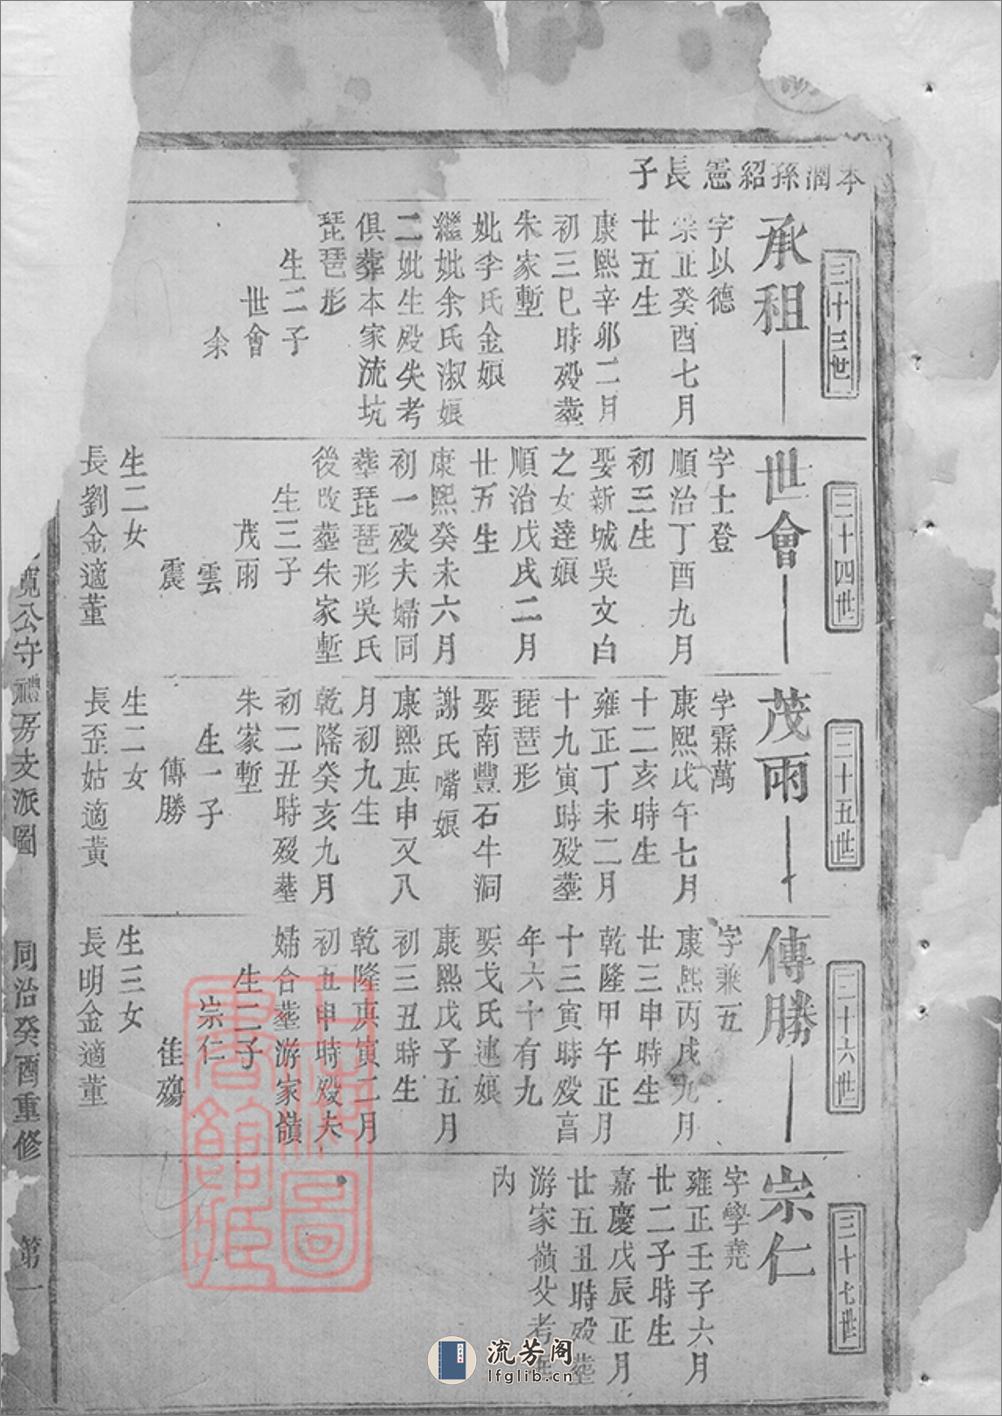 本潤孫紹憲長子
三十三世
承祖
字以德
崇正癸酉七月
廿五生
康熙辛卯二月
初三巳時殁塟
朱家塹
妣李氏金娘
繼妣余氏淑娘
二妣生殁失考
俱葬本家流坑
琵琶形
生二子
世會
余
三十四世
世會
字士登
順治丁酉九月
初三生
娶新城吳文白
之女達娘
順治戊戌二月
廿五生
康熙癸未六月
初一殁夫婦同
葬琵琶形吳氏
後改塟朱家塹
生三子
茂雨
雲
震
生二女
長劉金適董
三十五世
茂雨
字霖萬
康熙戊午七月
十二亥時生
雍正丁未二月
十九寅時殁塟
琵琶形
娶南豐石牛洞
謝氏嘴娘
康熙庚申又八
月初九生
乾隆癸亥九月
初二丑時殁塟
朱家塹
生一子
傳勝
生二女
長歪姑適黃
三十六世
傳勝
字兼五
康熙丙戌九月
廿三申時生
乾隆甲午正月
十三寅時殁亯
年六十有九
娶戈氏連娘
康熙戊子五月
初三丑時生
乾隆庚寅二月
初五申時殁夫
婦合塟游家嶺
生二子
宗仁
佳殤
生三女
長明金適董
三十七世
宗仁
字學堯
雍正壬子六月
廿二子時生
嘉慶戊辰正月
廿五丑時殁塟
游家嶺父考
內
寬公守禮房支派圖
同治癸酉重修
第一
上海圖書館藏
流芳阁
lfglib.cn